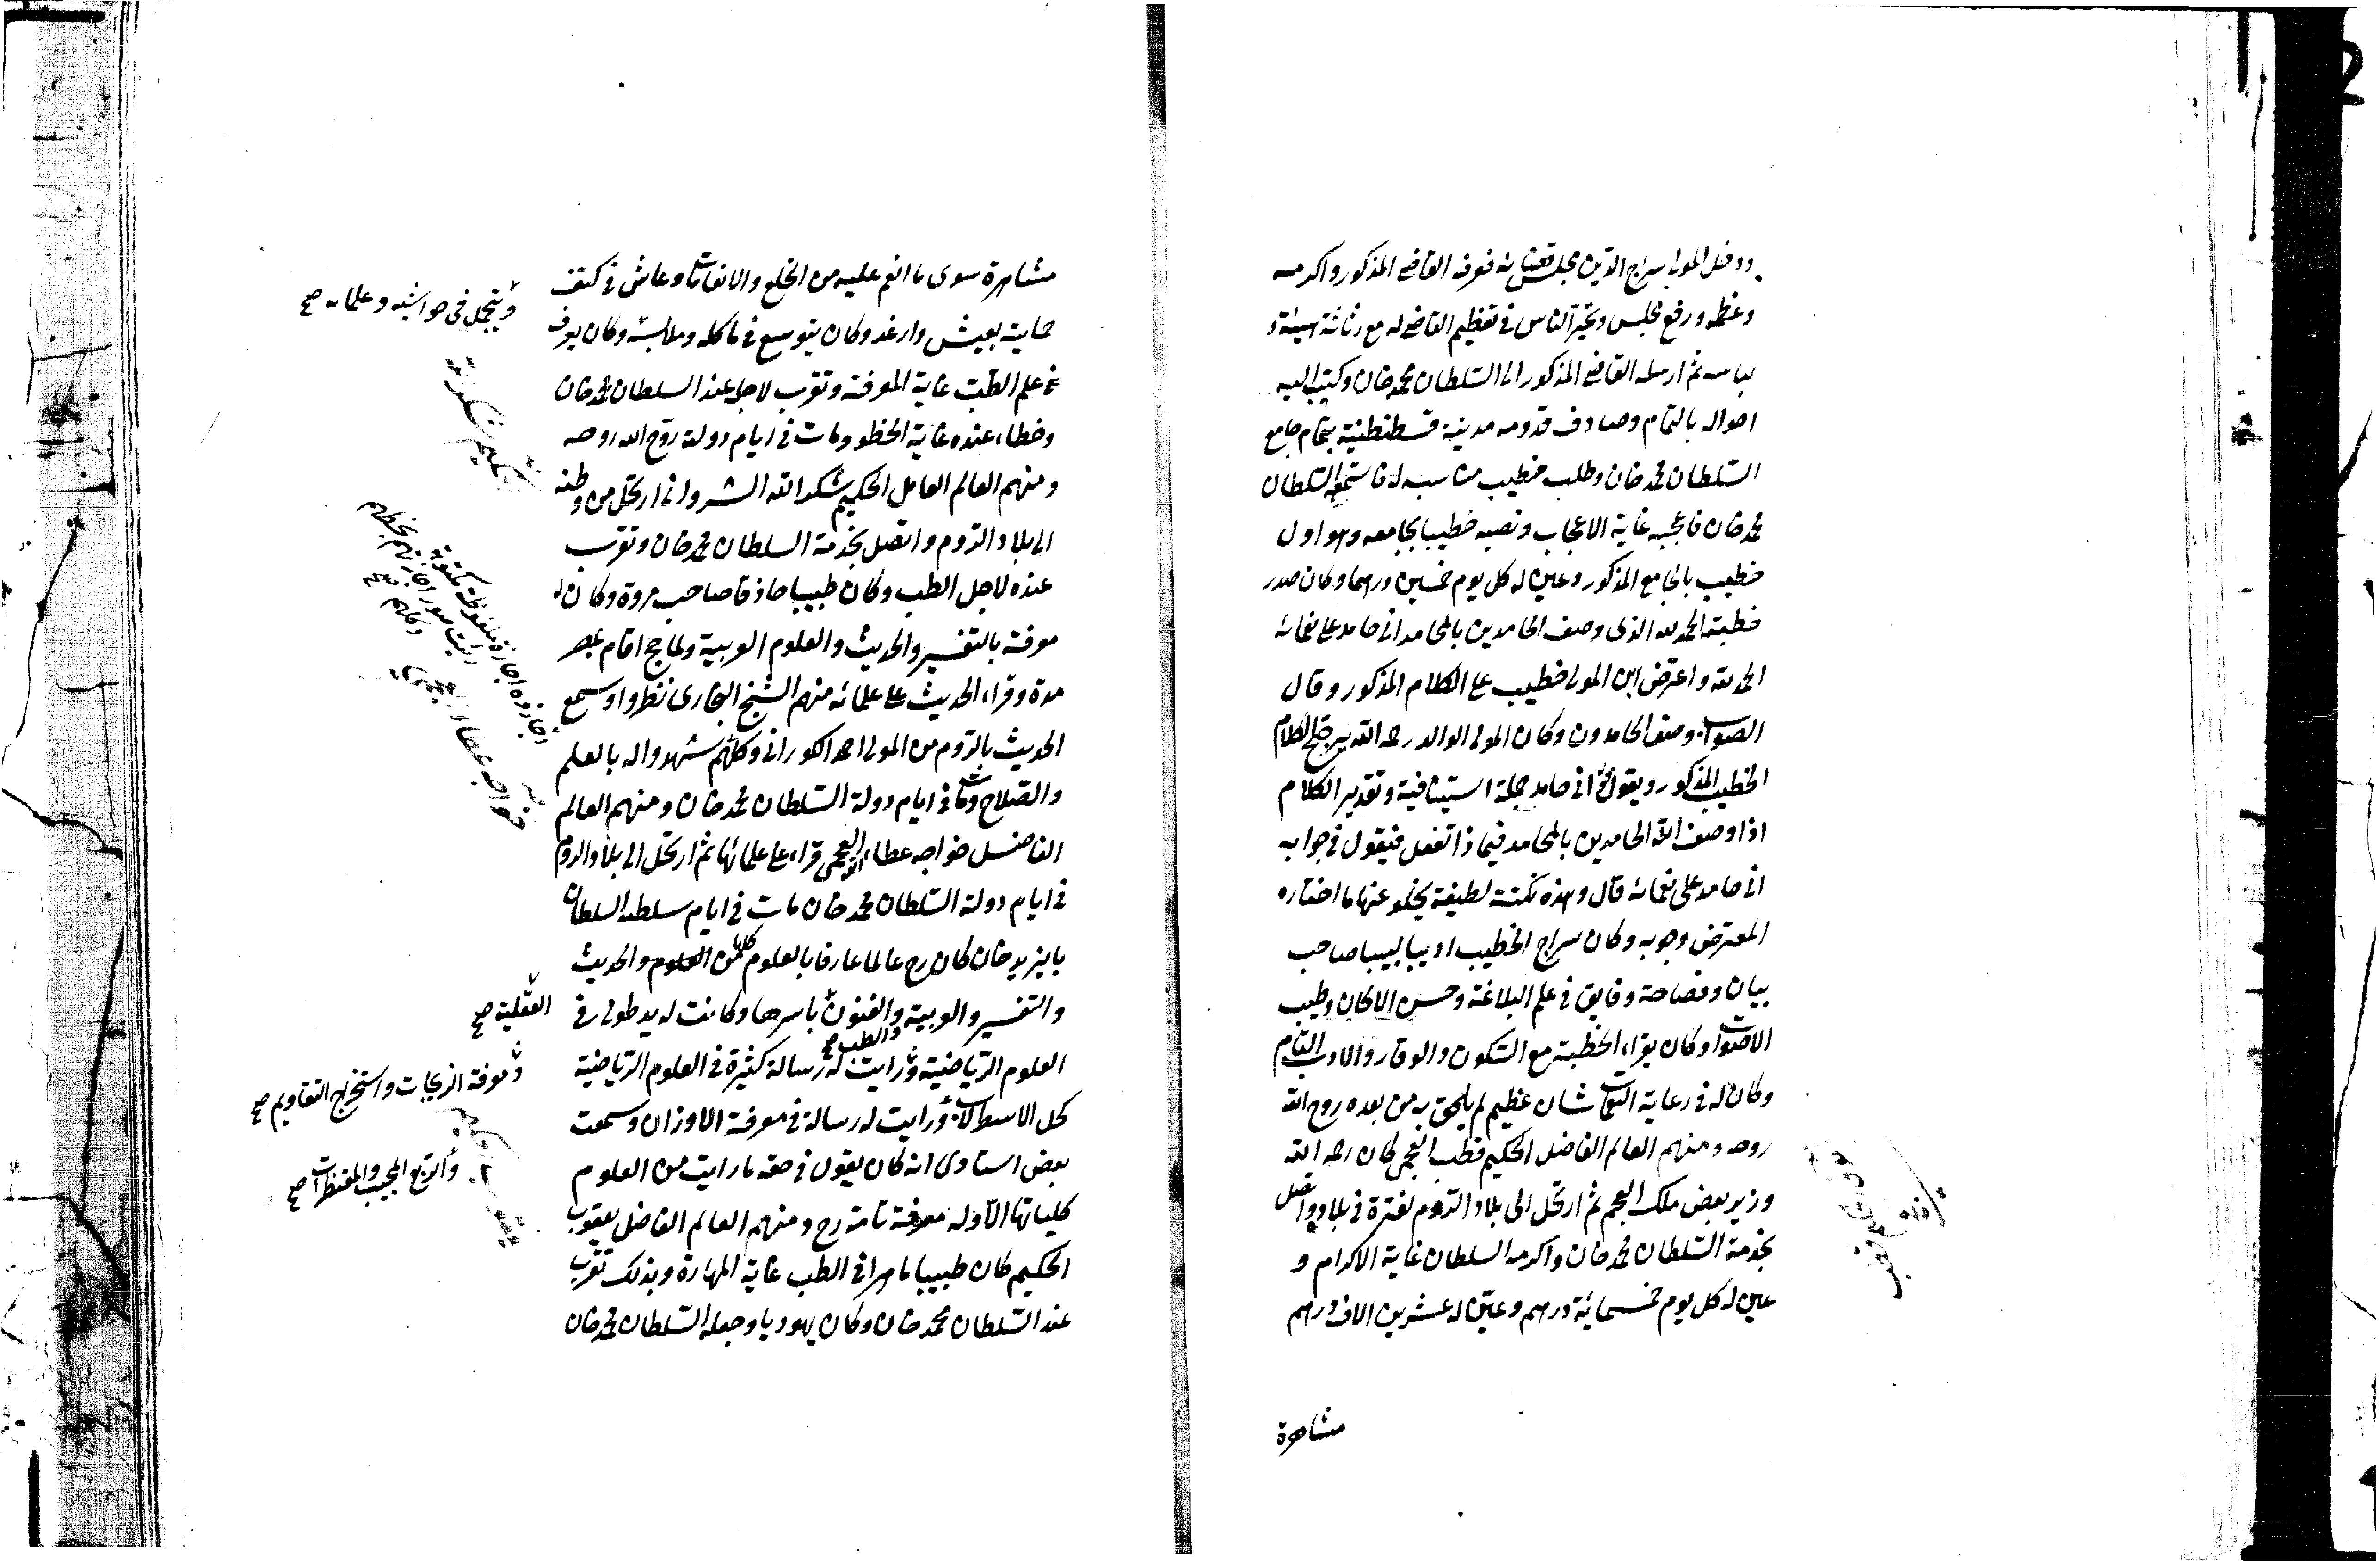 ودخل المولى سراج الدين مجلس قضائه فعرفه القاضي المذكور واكرمه
وعظمه ورفع مجلسه وتحير الناس في تعظيم القاضي له مع رثاثة هيئته و
لباسه ثم ارسله القاضي المذكور الى السلطان محمد خان وكتب اليه
احواله بالتمام وصادف قدومه مدينة قسطنطنية بتمام جامع
السلطان محمد خان وطلب خطيب مناسب له فاستمعه السلطان
محمد خان فاعجبه غاية الاعجاب ونصبه خطيبا بجامعه وهو اول
خطيب بالجامع المذكور وعين له كل يوم خمسين درهما وكان صدر
خطبته الحمد لله الذى وصف الحامدين بالمحامد انى حامد على نعمائه
الحمد لله واعترض ابن المولى خطيب على الكلام المذكور وقال
الصواب وصف الحامدون وكان المولى الوالد رحمه الله يرجح الكلام
الخطيب المذكور ويقول انى حامد جملة استينافية وتقدير الكلام
اذا وصف الله الحامدين بالمحامد فيما ذا تفعل فيقول في جوابه
انى حامد على نعمائه قال وهذه نكتة لطيفة يخلو عنها ما اختاره
المعترض وجوبه وكان سراج الخطيب اديبا لبيبا صاحب
بيان وفصاحة وفايق في علم البلاغة وحسن الالحان وطيب
الاصوات وكان يقراء الخطبة مع السكون والوقار والادب التام
وكان له في رعاية شان عظيم لم يلحق به من بعده روح الله
روحه ومنهم العالم الفاضل الحكيم قطب العجمى كان رحمه الله
وزير بعض ملك العجم ثم ارتحل الى بلاد الروم لفترة في بلاده واتصل
بخدمة السلطان محمد خان واكرمه السلطان غاية الاكرام و
عين له كل يوم خمسمائة درهم وعين له عشرين الاف درهم
مشاهرة
مولانا حكيم قطب
مشاهرة سوى ما انعم عليه من الخلع والانعامات وعاش في كنف
حمايته بعيش وارغد وكان يتوسع في مأكله وملابسه وكان يعرف
علم الطب غاية المعرفة وتقرب لاجله عند السلطان محمد خان
وخطاء عنده غاية الحظو ومات في ايام دولته روح الله روحه
ومنهم العالم العامل الحكيم شكر الله الشروانى ارتحل من وطنه
الى بلاد الروم واتصل بخدمة السلطان محمد خان وتقرب
عنده لاجل الطب وكان طبيبا حاذقا صاحب مروة وكان له
معرفة بالتفسير والحديث والعلوم العربية ولما حج اقام بمصر
مدة وقراء الحديث على علمائه منهم الشيخ البخارى وسمع
الحديث بالروم من المولى احمد الكورانى وكلهم شهدوا له بالعلم
والصلاح ومات في ايام دولة السلطان محمد خان ومنهم العالم
الفاضل خواجه عطاء الله العجمى قراء على علمائها ثم ارتحل الى بلاد الروم
في ايام دولة السلطان محمد خان مات في ايام سلطنه السلطان
بايزيد خان كان رح عالما عارفا بالعلوم كلها من العلوم والحديث
والتفسير والعربية والفنون باسرها وكانت له يد طولى في
العلوم الرياضية ورايت له رسالة كثيرة في العلوم الرياضية
والطب صح
كحل الاسطرلاب ورايت له رسالة في معرفة الاوزان وسمعت
بعض استادى انه كان يقول في حقه ما رايت من العلوم
كلياتها الا وله معرفة تامة رح ومنهم العالم الفاضل يعقوب
الحكيم كان طبيبا ماهرا في الطب غاية المهارة وبذلك تقرب
عند السلطان محمد خان وكان يهوديا وجعله السلطان محمد خان
ويتجمل في حواشيه وغلمانه صح
الحكيم شكر الله
اجازوه اجازة ملفوظة مكتوبة
رايت صور اجازتهم بخطهم
وكلهم صح
خواجه عطاء الله العجمى
العقلية صح
ومعرفة الزيجات واستخراج التقاويم صح
والربع المجيب والمقنطرات صح
يعقوب حكيم